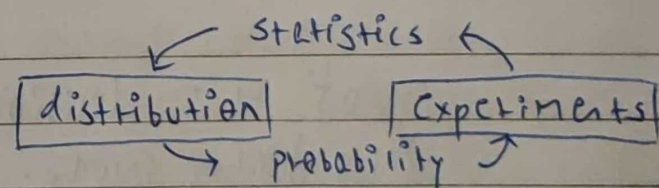 statistics
distribution experiments
probability